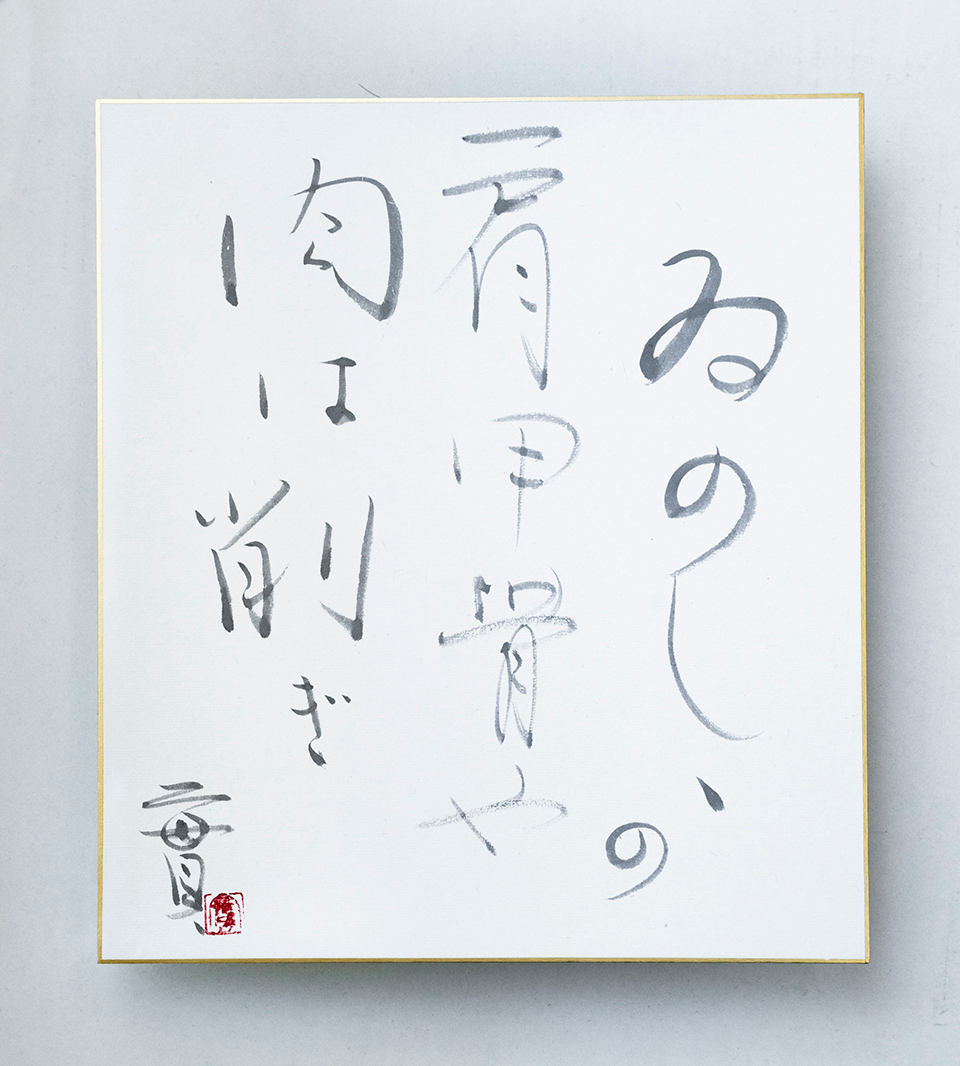 ゐのしゝの
肩甲骨や
肉は削ぎ
實